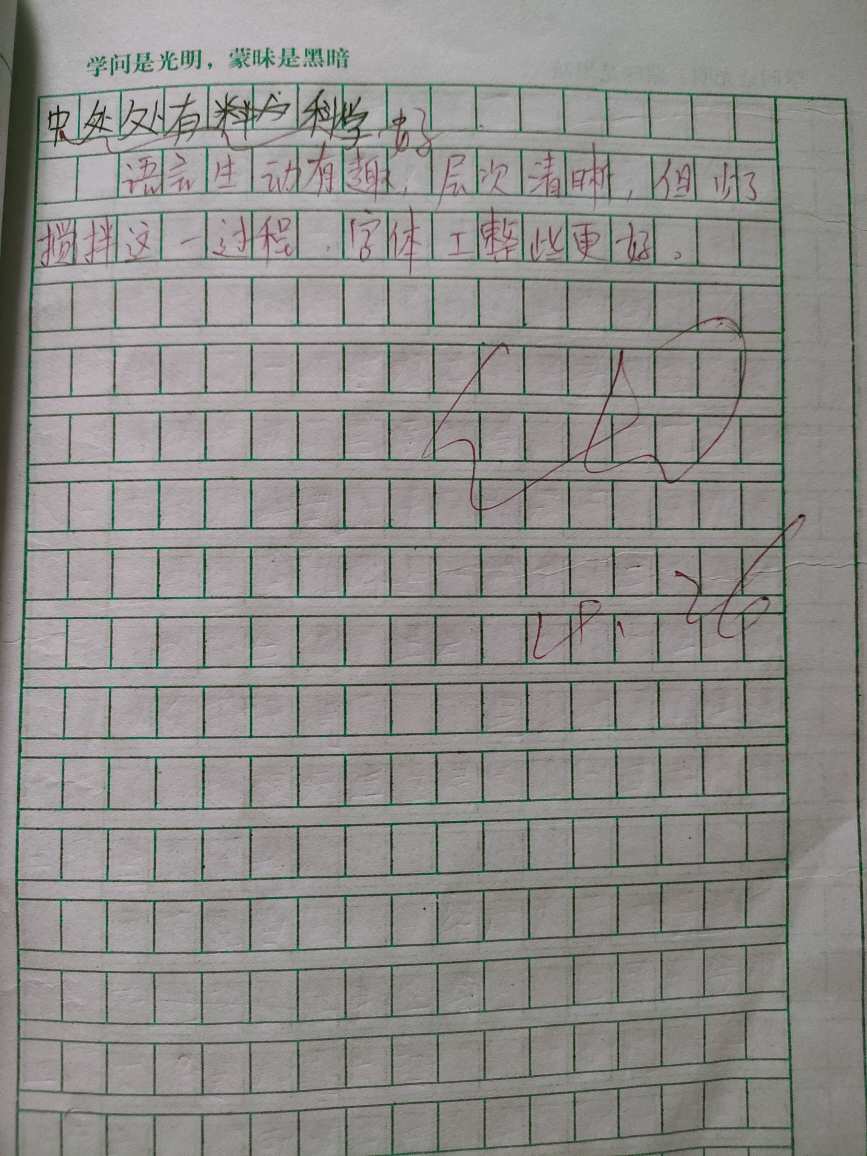 学问是光明，蒙昧是黑暗
中处处有科学。好
语言生动有趣，层次清晰，但少了
搅拌这一过程，字体工整些更好。
26